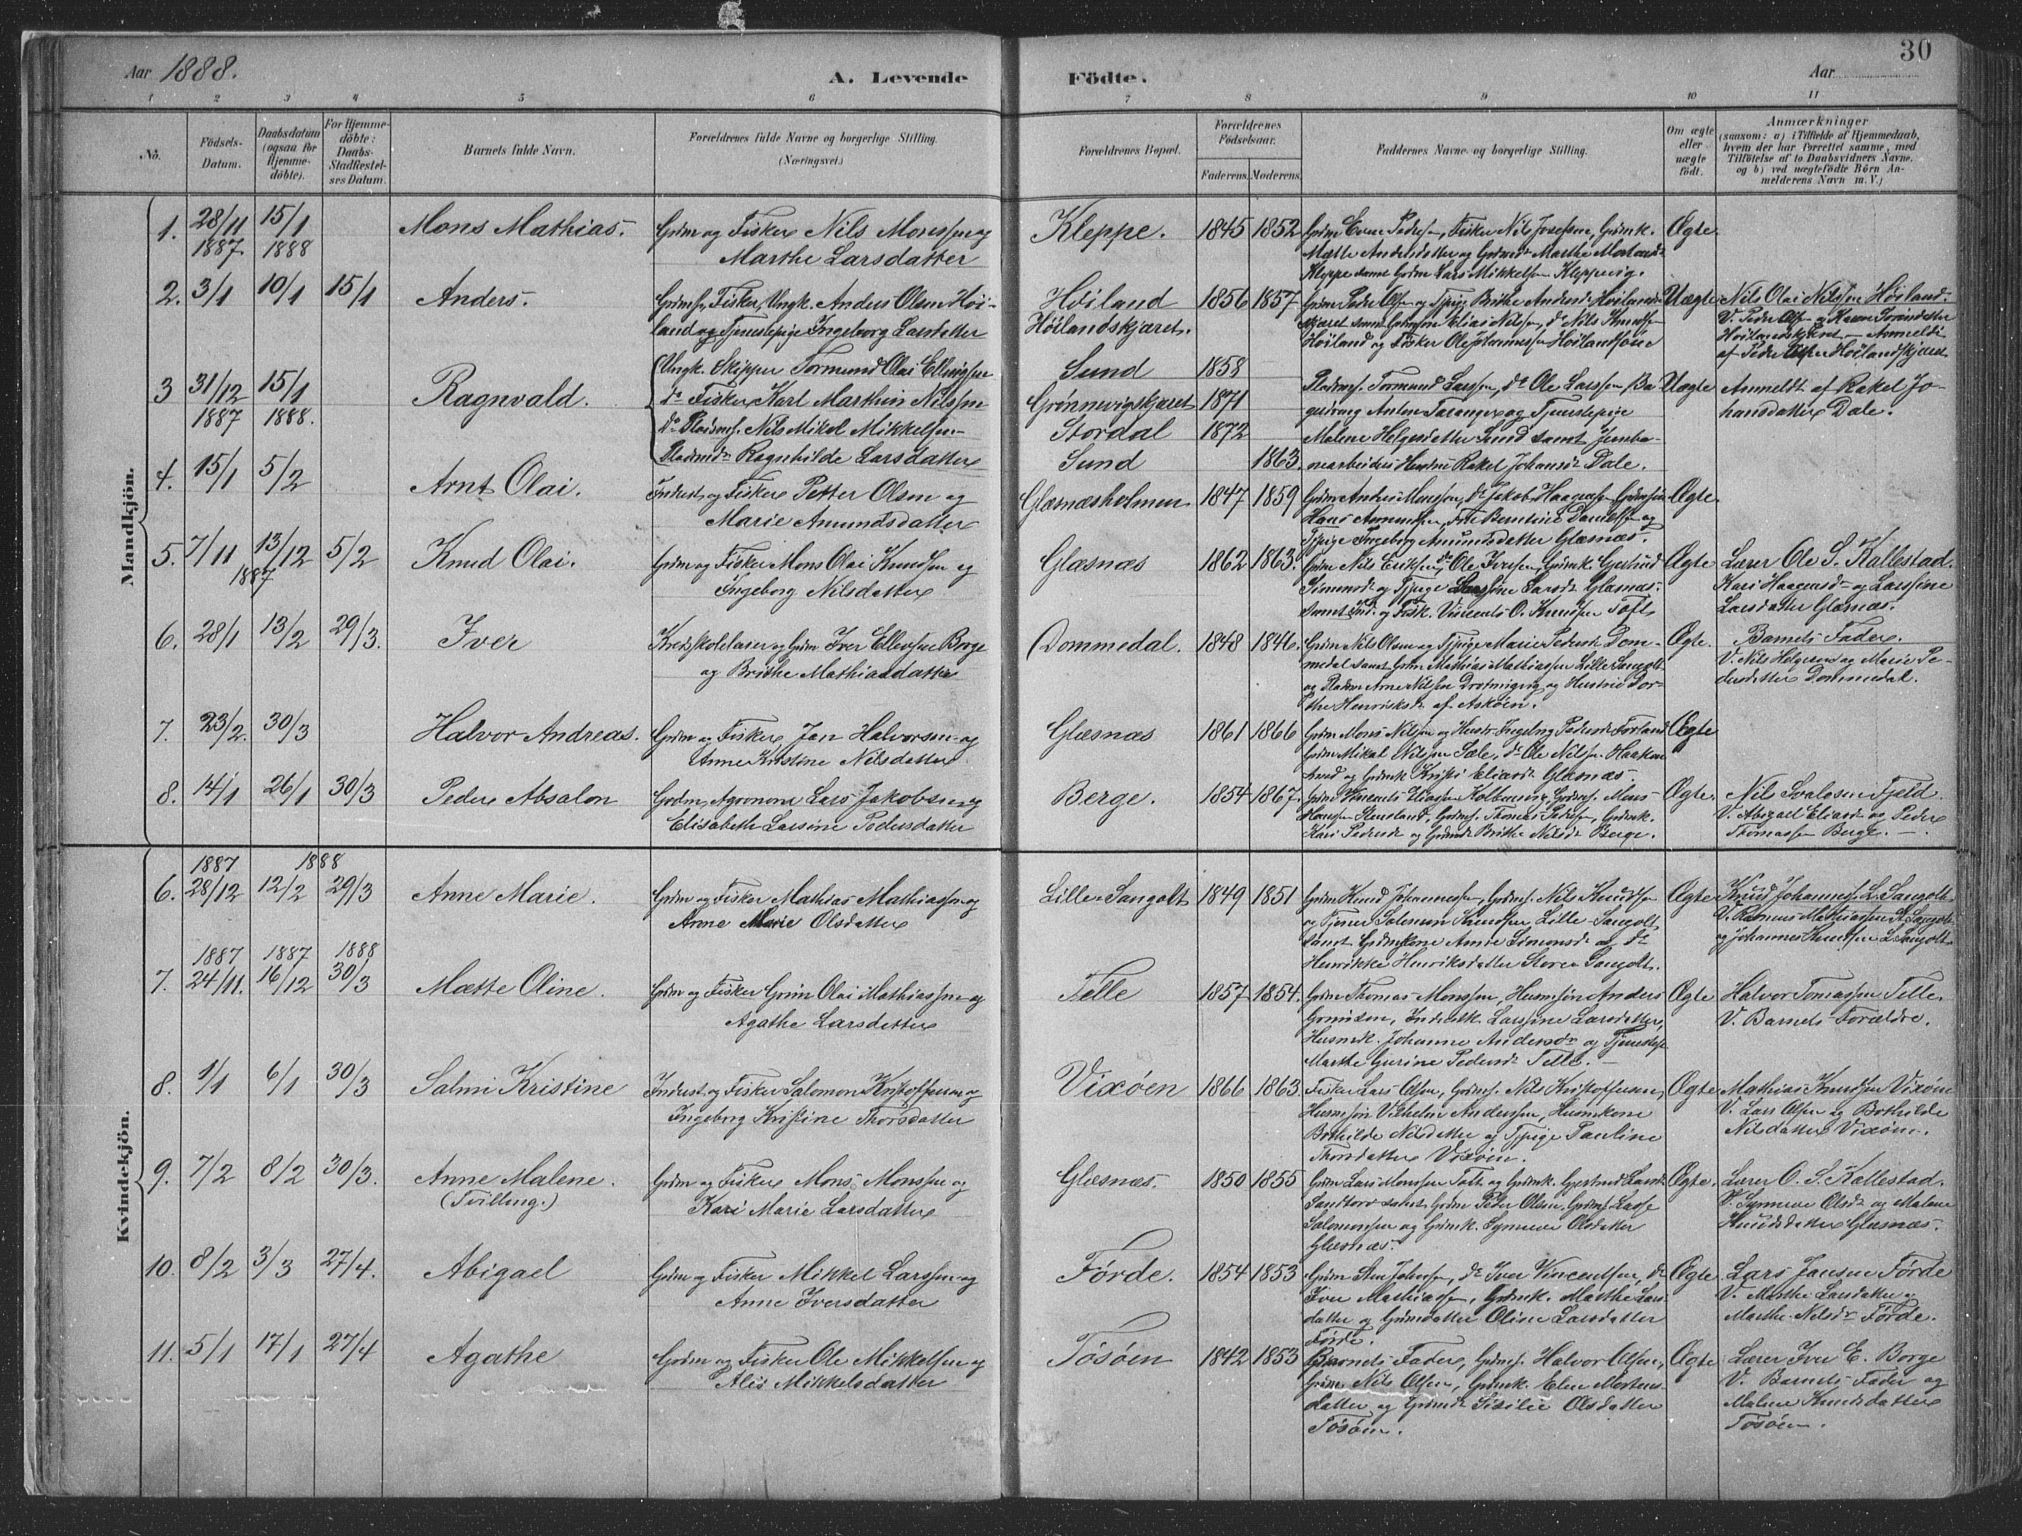 30
Aar 1888.
A. Levende Födte.
Aar
1 2 3 4 5 6 7 8 9 10 11
No.
Födsels-Datum.
Daabsdatum (ogsaa for Hjemme-döbte).
For Hjemme-döbte: Daabs-Stadfæstel-ses Datum.
Barnets fulde Navn.
Forældrenes fulde Navne og borgerlige Stilling. (Næringsvei.)
Forældrenes Bopæl.
Forældrenes Födselsaar.
Faderens. Moderens.
Faddernes Navne og borgerlige Stilling.
Om ægte eller uægte födt.
Anmærkninger
(saasom: a) i Tilfælde af Hjemmedaab, hvem der har forrettet samme, med Tilföielse af to Daabsvidners Navne. og b) ved uægtefödte Börn An-melderens Navn m. V.)
Mandkjön.
1. 28/11 1887 15/1 1888 Mons Mathias. Grdm og Fisker Nils Monssen og
Marthe Larsdatter
Kleppe. 1845 1852 Grdm Peders, Fisker Nils Josefsen, Grdmk.
Mætte Andersdatter og Marthe
Kleppe samt Grdm Lars Mikkelsen Kleppevig.
Ægte.
2. 3/1 10/1 15/1 Anders. Fisker Ungk. Anders Olsen Höi-
land og Tjenestepige Ingeborg Larsdatter
Höiland
Höilandskjæret.
1856 1857 Peder Olsen og Tjpige Brithe Andersd.
skjæret samt Elias Nilsen, do Nils Knudsen
Höiland og Fisker Ole Johannessen
Uægte Nils Olai Nilssen Höiland.
V. Peder Olsen og
Höilandskjæret. Anmeldt
af Peder Olsen Höilandskjæret
3 31/12 1887 15/1 1888. Ragnvald. Ungk. Skipper Tormund Olai Ellingsen
do Fisker Karl Marthin Nilssen
do Pladsms. Nils Mikal Mikkelsen
Ragnhilde Larsdatter
Sund 1858
Grönnevigskjæret 1871
Stordal 1872
Sund 1863.
Tormund Larssen, do Ole Larssen,
Taranger og Tjenestepige
Malene Helgesdatter Sund samt Jernba-
nearbeiders Hustru Rakel Johansd. Dale.
Uægte Anmeldt af Rakel Jo-
hansdatter Dale.
4. 15/1 5/2 Arnt Olai. Inderst og Fisker Petter Olsen og
Marie Amundsdatter
Glæsnæsholmen 1847 1859 Grdm Andreas Monssen, do Jakob Haagensen,
Hans Amundsen, Berntine Danielsen og
Tjpige Ingeborg Amundsdatter Glæsnæs.
Ægte.
5. 7/11 13/12 1887 5/2 Knud Olai. Grdm og Fisker Mons Olai Knudsen og
Ingeborg Nilsdatter
Glæsnæs 1862 1863. Grdm Nils Eriksen, do Ole Iversen, Grdmk. Gjertrud
Simonsd. og Tjpige Larsine Larsd. Glæsnæs.
samt Ind. og Fisk. Vincents O. Knudsen Toft
Ægte Lærer Ole S. Kallestad.
Kari Haagensd. og Larssine
Larsdatter Glæsnæs.
6. 28/1 13/2 29/3. Iver Kredsskolelærer og Grdm Iver Ellevsen Borge
og Brithe Mathiasdatter
Dommedal. 1848 1846. Grdm Nils Olsen og Tjpige Marie Pedersd. Dom-
medal samt Grdm Mathias Mathiassen Lille Sangolt
og Pladsm Arne Nilssen Drotningvig og Hustru Dor-
the Henriksd. af Asköen.
Ægte. Barnets Fader.
V. Nils Helgesen og Marie Pe-
dersdatter Dommedal.
7. 23/2. 30/3 Halvor Andreas. Grdm og Fisker Jan Halvorsen og
Anne Kristine Nilsdatter
Glæsnæs 1861 1866 Grdm Mons Nilsen og Hustr. Ingeborg Pedersd. Forland
Grdm Mikal Nilssen Sæle, do Ole Nilsen Haaken
og Grdmk Kristi Eliasd. Glæsnæs.
Ægte
8. 14/1 26/1 30/3 Peder Absalon Grdm, Agronom Lars Jakobsen og
Elisabeth Larsine Pedersdatter
Berge. 1854 1867. Grdm Vincents Eliassen Kolbeinsvig, Grdms. Mons
Hansen Steensland, Grdms. Thomas Peders, Grdmk.
Kari Pedersd. og Brithe Nilsd. Berge.
Ægte. Nils Fjeld.
V. Abigael Eliasd. og Peder
Thomassen Berge.
Kvindekjön.
6. 1887 28/12 1888 12/2 29/3 Anne Marie. Grdm og Fisker Mathias Mathiassen og
Anne Marie Olsdatter
Lille Sangolt 1849 1851 Grdm Knud Johannessen, Grdms. Nils Knudsen
og Tjener Salomon Knudsen Lille Sangolt
samt Grdmkone Anna Simonsd. og do
Henrikke Henriksdatter Store Sangolt.
Ægte Knud Johannes. L. Sangolt
V. Rasmus Mathiassen St. Sangolt
og Johannes Knudsen L. Sangolt
7. 1887 24/11. 1887 16/12 1888 30/3 Mætte Oline. Grdm og Fisker Grim Olai Mathiassen og
Agathe Larsdatter
Telle 1857 1854. Grdm Thomas Monssen, Husmsön Anders
Grimsen, Larssine Larsdatter,
Husmk. Johanne Andersd. og Tjenestep.
Marthe Gurine Pedersd. Telle.
Ægte Halvor Tomassen Telle.
V. Barnets Forældre.
8. 1/1 6/1 30/3 Salmi Kristine Inderst og Fisker Salomon Kristoffersen og
Ingeborg Kristine Thorsdatter
Vixöen 1866 1863. Fisker Lars Olsen, Grdms. Nils Kristoffersen,
Husmsön Vilhelm Andersen, Husmkone
Bothilde Nilsdatter og Tjpige Pauline
Thorsdatter Vixöen.
Ægte Mathias Knudsen Vixöen
V. Lars Olsen og Bothilde
Nilsdatter Vixöen.
9. 7/2 8/2 30/3. Anne Malene.
(Tvilling.)
Grdm og Fisker Mons Monssen og
Kari Marie Larsdatter
Glæsnæs. 1850 1855 Grdm Lars Monssen Toft og Grdmk. Gjertrud Larsd.
Sandtorv samt Grdm Peder Olsen, Grdms. Lasse
Salomonsen og Grdmk. Synneve Olsdatter
Glæsnæs.
Ægte. Lærer O. S. Kallestad.
V. Synneve Olsd. og Malene
Knudsdatter Glæsnæs.
10. 8/2 3/3 27/4. Abigael Grdm og Fisker Mikkel Larssen og
Anne Iversdatter
Förde. 1854 1853 Grdm Johnsen, do Iver Vincentsen, do
Iver Mathiassen, Grdmk. Marthe Lars-
datter og Oline Larsdatter
Förde.
Ægte Lars Jansen Förde
V. Marthe Larsdatter og
Marthe Nilsd. Förde.
11. 5/1 17/1 27/4 Agathe Grdm og Fisker Ole Mikkelsen og
Alis Mikkelsdatter
Tösöen 1842 1853 Barnets Fader, Grdms. Halvor Olsen,
Grdm Nils Olsen, Grdmk. Elen Mortens-
datter og Sisilie Olsdatter
Tösöen.
Ægte Lærer Iver E. Borge
V. Barnets Fader og
Malene Knudsdatter
Tösöen.